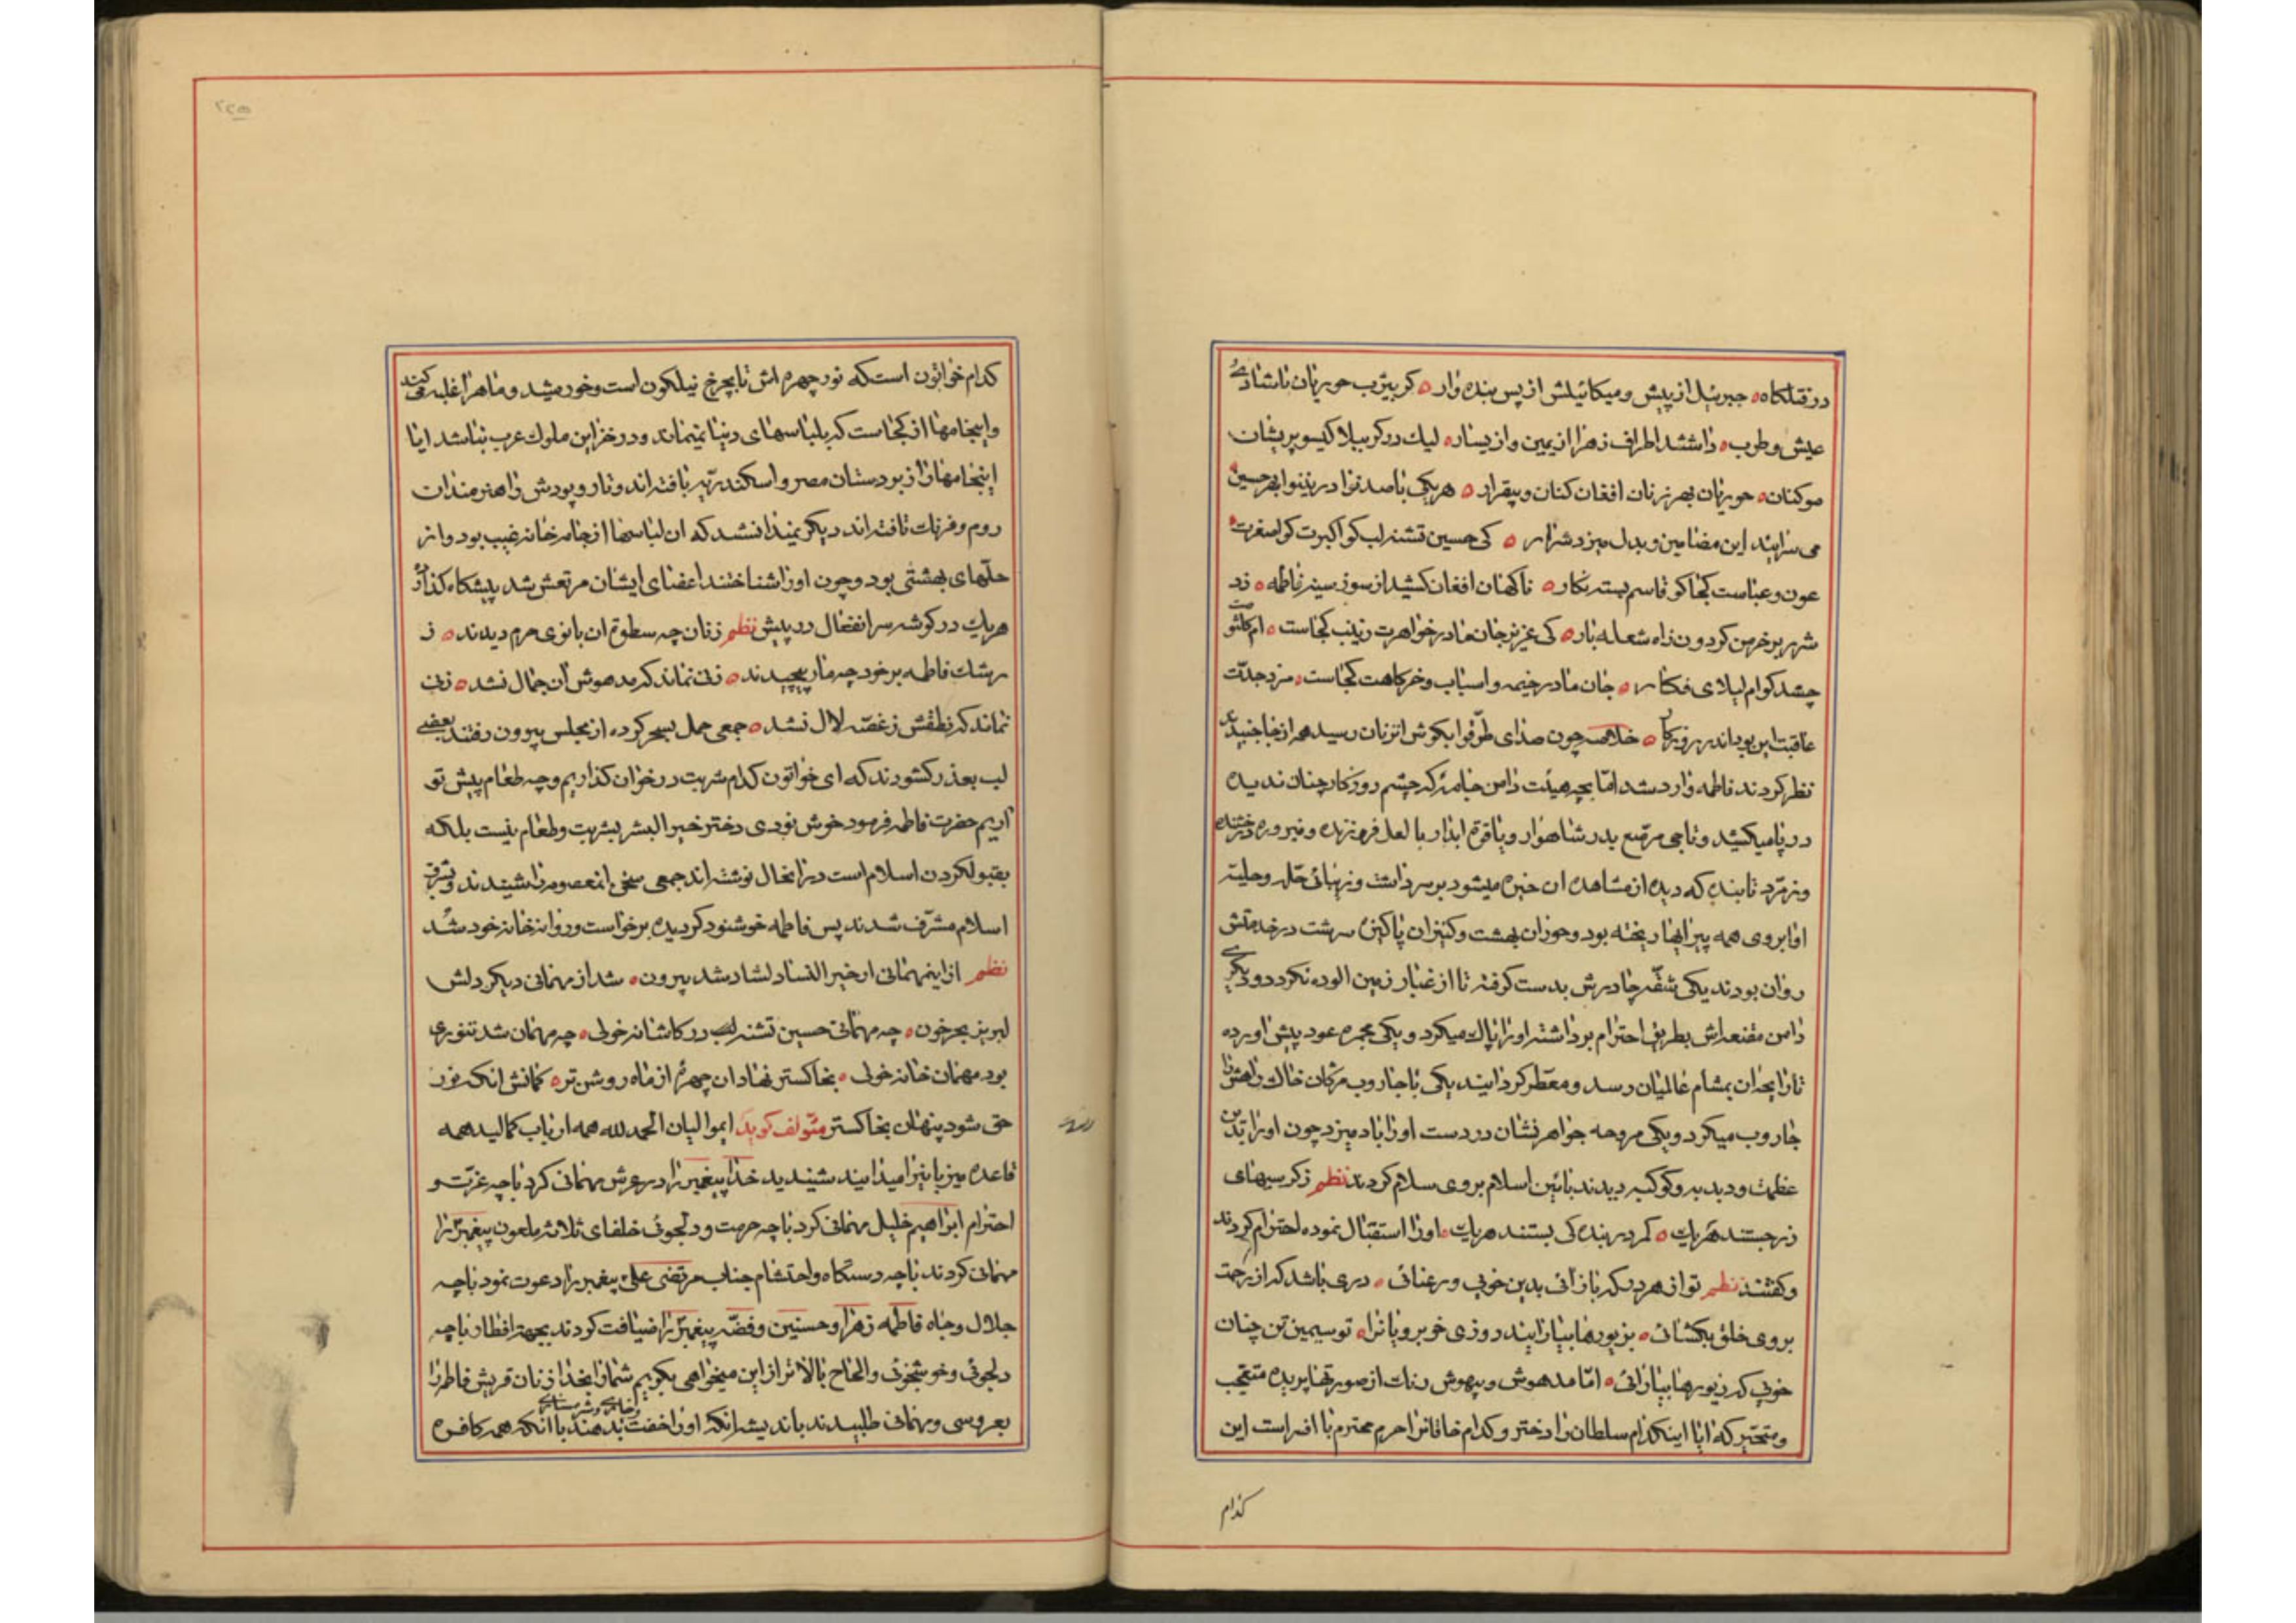 در قتلگاه جبرئیل از پیش و میکائیلش از پس بنده وار گر بیثرب حوریان باشادی
عیش و طرب داشتند اطراف زهرا از یمین و از یسار لیك در کربلا گیسو پریشان
موکنان حوریان بهر زنان افغان کنان و بیقرار هریکی با صد نوا در نینوا بهر حسین
می سرایند این مضامین و بدل میزد شرار کی حسین تشنه لب کو اکبرت کو اصغرت
عون و عباست کجا کو قاسم بسته نگار ناگهان افغان کشید از سوز سینه فاطمه زد
شرر بر خرمن گردون ز آه شعله بار کی عزیز جان مادر خواهرت زینب کجاست ام کلثومت
چشد کو ام لیلای فکار جان مادر خیمه و اسباب و خرگاهت کجاست مزد جدت
عاقبت این بود اندر روزگار خلاصه چون صدای طرقوا بگوش انزنان رسید همه از جا جنبیدند
نظر کردند فاطمه وارد شد امّا بچه هیئت دامن جامهٔ که چشم روزگار چنان ندیده
در پا میکشید و تاجی مرصّع بدر شاهوار و یاقوت ابدار با لعل فروزنده و فیروزه درخشنده
و زمرّد تابنده که دیده از مشاهده ان خیره میشود بر سر داشت و زیبائی حلل و حلیه
او ابروی همه پیرایها ریخته بود و حوران بهشت و کنیزان پاکیزه سرشت در خدمتش
روان بودند یکی شقّه چادرش بدست گرفته تا از غبار زمین الوده نگردد و دیگری
دامن مقنعه اش بطریق احترام برداشته او را پاك میکرد و یکی مجمره عود پیش اورده
تا رایحه ان بمشام عالمیان رسد و معطر گردانیند یکی با جاروب مژگان خاك راهش را
جاروب میکرد و یکی مروحه جواهر نشان در دست او را باد میزد چون او را بدین
عظمت و دبدبه و کوکبه دیدند بائین اسلام بروی سلام کردند نظم ز کرسیهای
زر جستند هریك کمر در بندگی بستند هریك او را استقبال نموده احترام کردند
و گفتند نظم تو از هر در که باز آئی بدین خوبی و رعنائی دری باشد که از رحمت
بروی خلق بگشائی بزیورها بیارایند روزی خوبرویانرا تو سیمین تن چنان
خوبی که زیورها بیارائی امّا مدهوش و بیهوش رنك از صورتها پریده متعجب
و متحیّر که ایا اینکدام سلطان را دختر و کدام خاقانرا حرم محترم با افسر است این
کدام
کدام خواتون است که نور چهره اش تا بچرخ نیلگون است و خورشید و ماه را غلبه میکند
و اینجامها از کجاست که بلباسهای دنیا نمیماند و در خزاین ملوك عرب نباشد ایا
اینجامها را زبردستان مصر و اسکندریّه بافته اند و تار و پودش را هنرمندان
روم و فرنك تافته اند دیگر نمیدانستند که ان لباسها از جامه خانه غیب بود و از
حلّهای بهشتی بود و چون او را شناختند اعضای ایشان مرتعش شد پیشگاه گذارده
هریك در گوشه سر انفعال در پیش نظم زنان چه سطوة ان بانوی حرم دیدند ز
رشك فاطمه بر خود چه مار پیچیدند زنی نماند که مدهوش ان جمال نشد زنی
نماند که نطقش ز غصّه لال نشد جمعی حمل بسحر کرده از مجلس بیرون رفتند بعضی
لب بعذر گشودند که ای خواتون کدام شربت در خوان گذاریم و چه طعام پیش تو
آریم حضرت فاطمه فرمود خوش نودی دختر خیر البشر بشربت و طعام نیست بلکه
بقبولکردن اسلام است در انحال نوشته اند جمعی سخن انمعصومه را شنیدند و بشرف
اسلام مشرّف شدند پس فاطمه خوشنود گردیده برخواست و روانه خانه خود شد
نظم از اینمهمانی ار خیر النسا دلشاد شد بیرون شد از مهمانی دیگر دلش
لبریز بحر خون چه مهمانی حسین تشنه لب در کاشانه خولی چه مهمان شد تنوری
بود مهمان خانه خولی بخاکستر نهاد ان چهرهٔ از ماه روشن تر گمانش انکه نور
حق شود پنهان بخاکستر مؤلف گوید ایموالیان الحمد لله همه ارباب کمالید همه
قاعده میزبانیرا میدانید شنیدید خدا پیغمبر را در عرش مهمانی کرد با چه عزت و
احترام ابراهیم خلیل مهمانی کرد با چه حرمت و دلجوئی خلفای ثلاثه ملعون پیغمبر را
مهمانی کردند با چه دستگاه و احتشام جناب مرتضی علی پیغمبر را دعوت نمود با چه
جلال و جاه فاطمه زهرا و حسنین و فضّه پیغمبر را ضیافت کردند بجهة افطار با چه
دلجوئی و خوشخوئی و الحاح بالاتر از این میخواهی بگویم شما را بخدا زنان قریش فاطمه را
بعروسی و مهمانی طلبیدند باندیشه انکه او را خفت بدهند با آنکه همه کافره